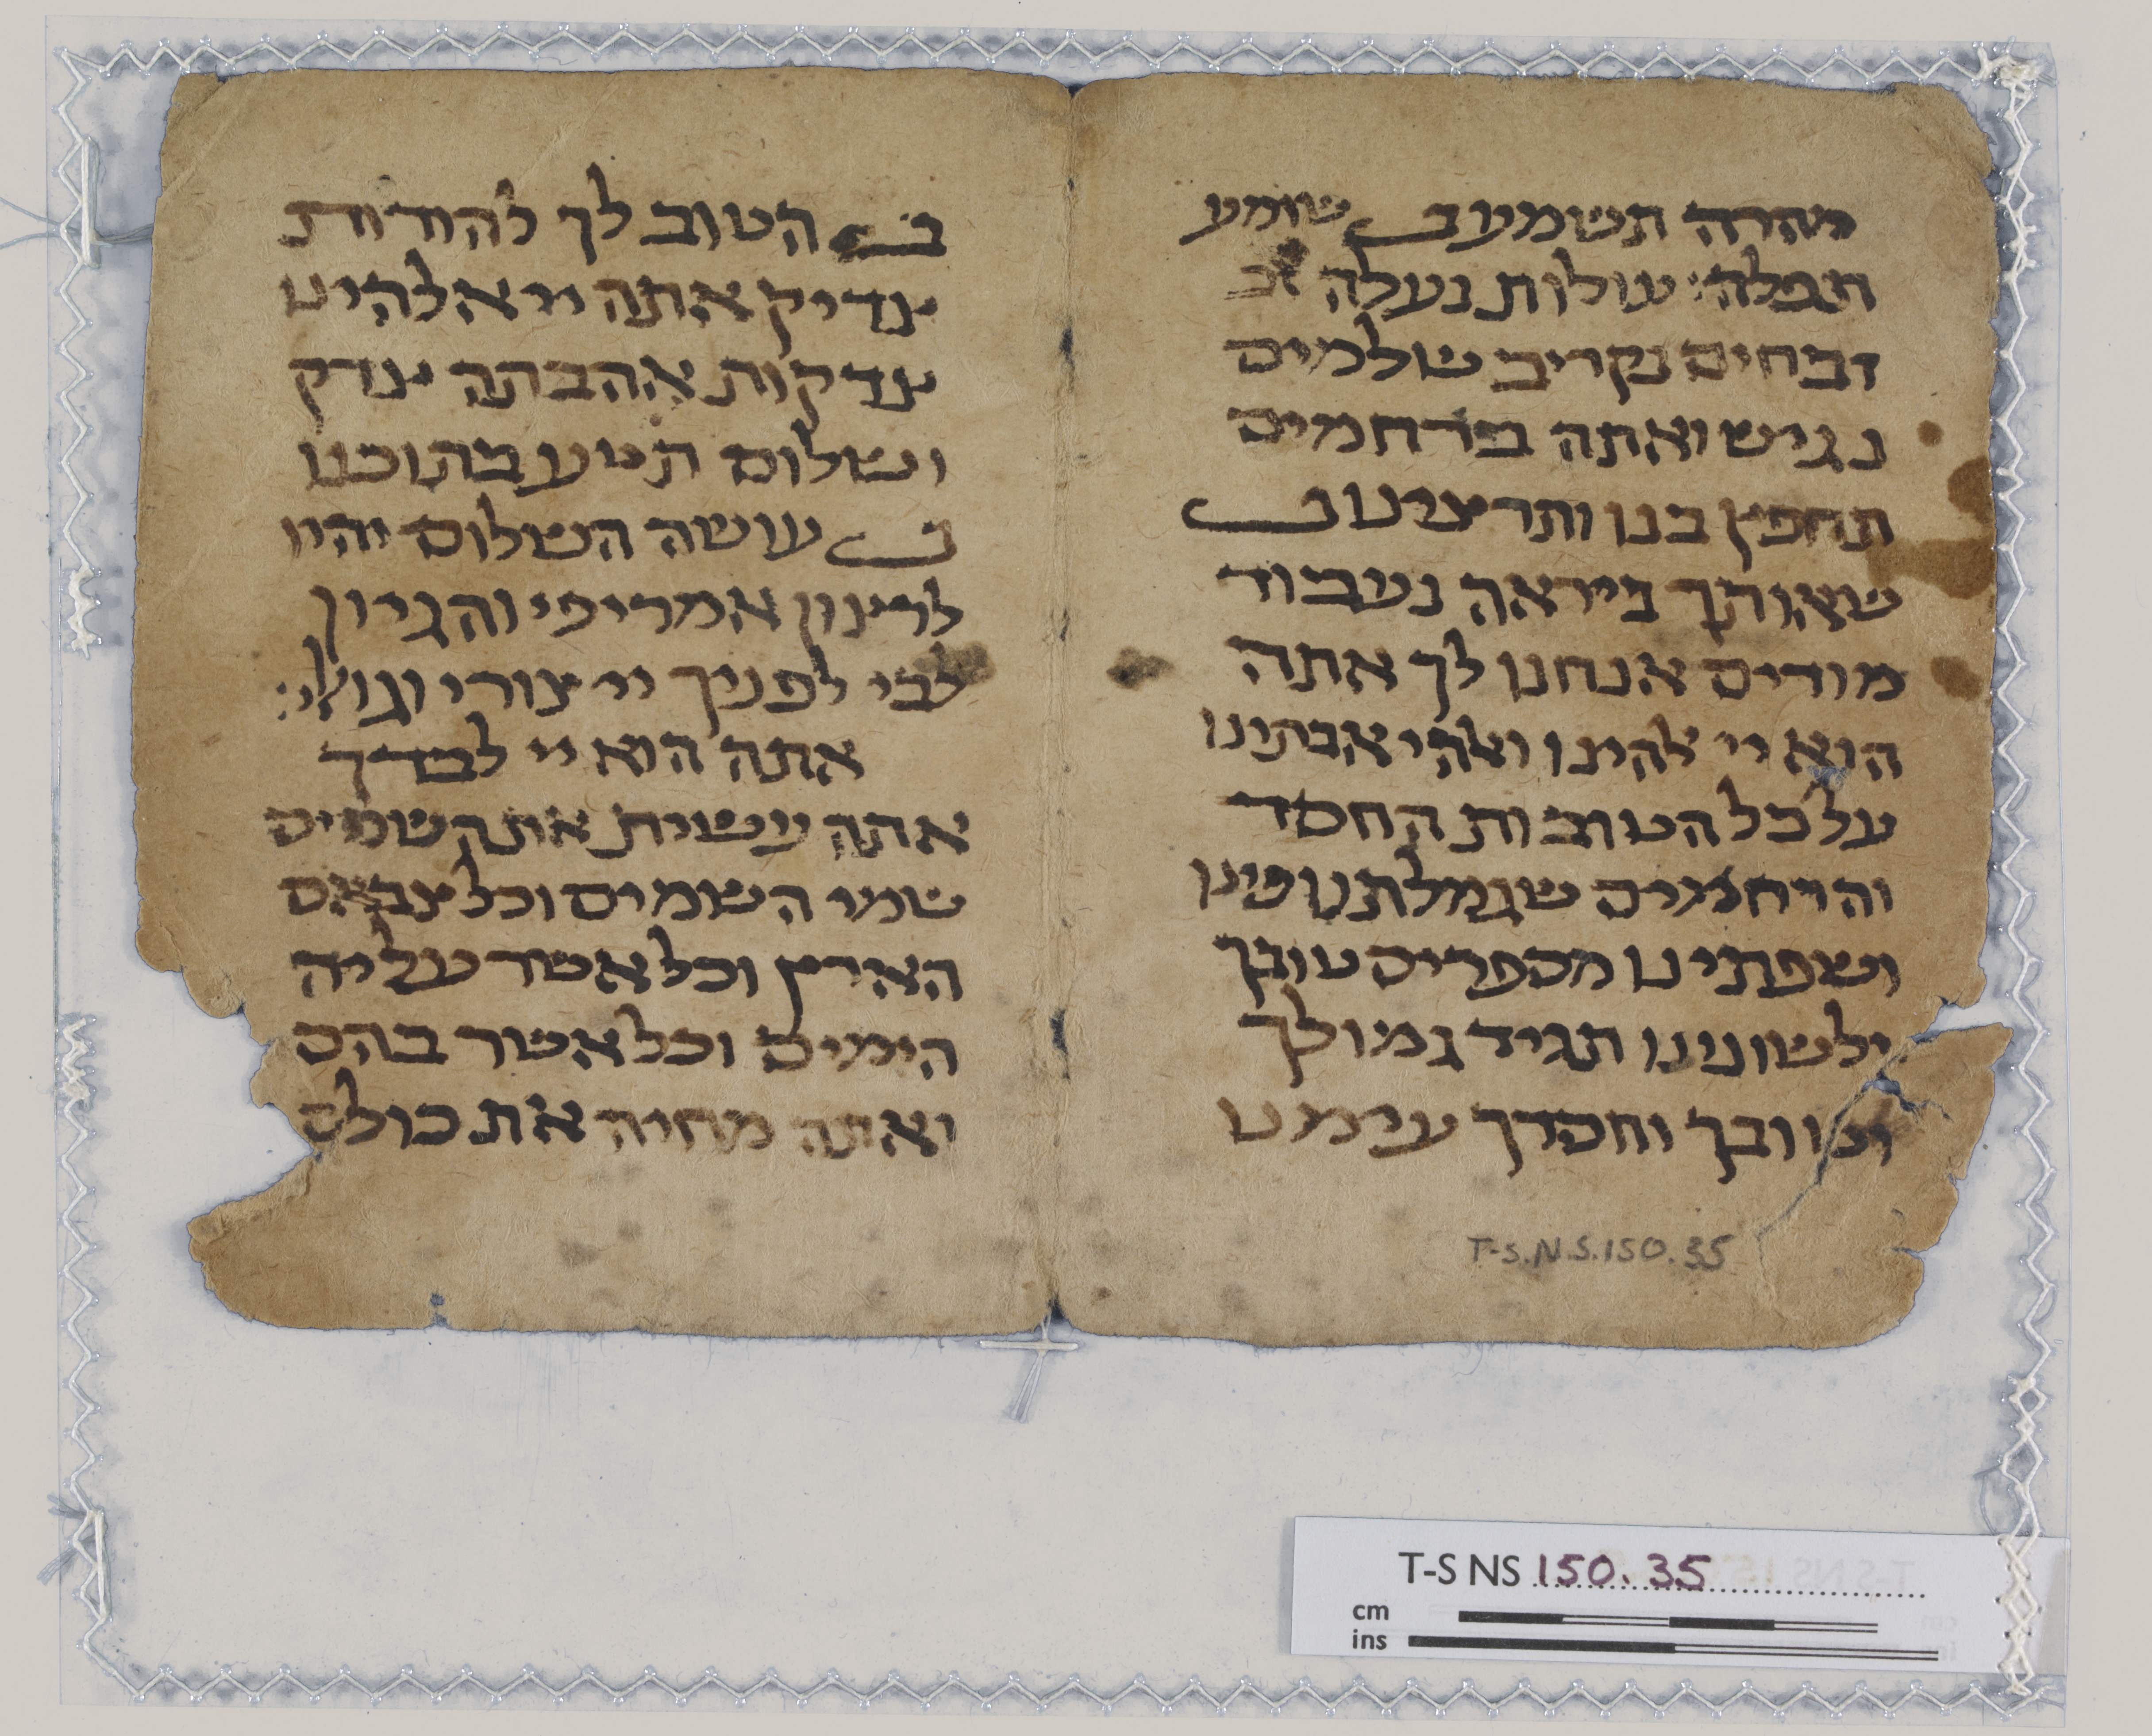 מהרה תשמע ב שומע
תפלה׃ עולות נעלה
זבחים נקריב שלמים
נגיש ואתה ברחמים
תחפץ בנו ותרצינו ב
שאותך ביראה נעבוד
מודים אנחנו לך אתה
הוא יי להינו ולהי אבתינו
על כל הטובות החסד
והרחמים שגמלתנו
ושפתינו מספרים טובך
ולשונינו תגיד גמולך
וטובך וחסדך עימנו
T-S.N.S.150.35
ב הטוב לך להודות
צדיק אתה יי אלהינו
צדקות אהבתה צדק
ושלום תיטע בתוכנו
ב עושה השלום יהיו
לרצון אמרי פי והגיון
לבי לפניך יי צורי וגואלי׃
אתה הוא יי לבדך
אתה עשית את השמים
שמי השמים וכל צבאם
הארץ וכל אשר עליה
הימים וכל אשר בהם
ואתה מחיה את כולם
T-S NS 150.35
cm
ins